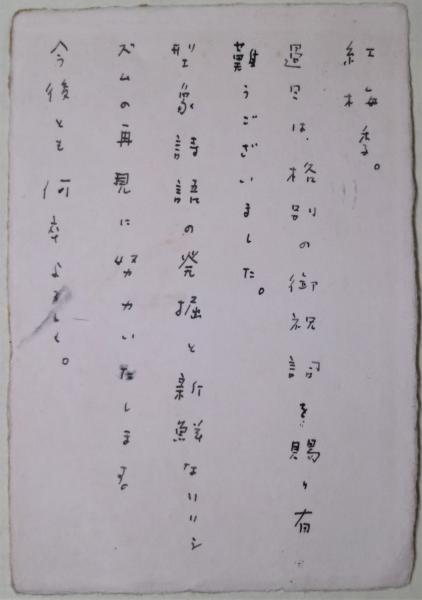 紅梅香る。
過日は、格別の御祝詞を賜り有
難うございました。
型象詩語の発掘と新鮮なリリシ
ズムの再現に努力いたします。
今後とも何卒よろしく。